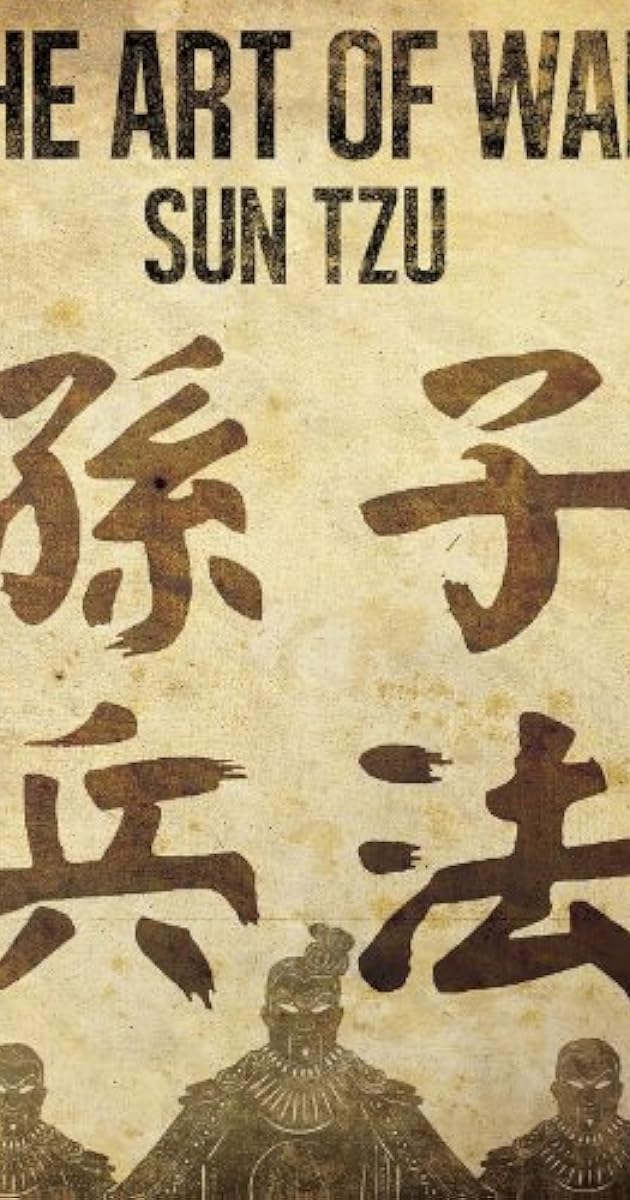 HE ART OF WA
SUN TZU
孫子
兵法